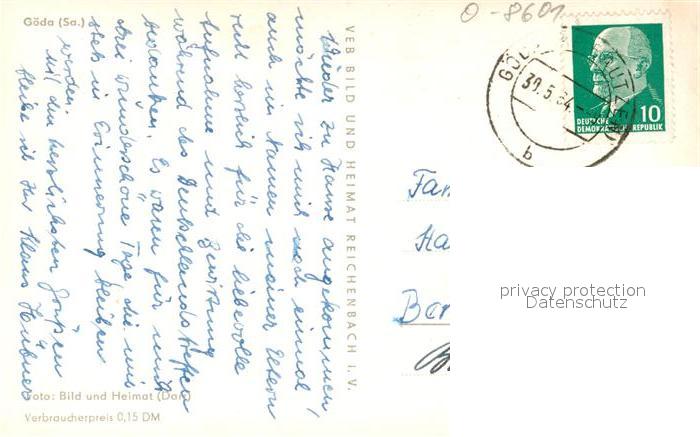 Göda (Sa.)
Wieder zu Hause angekommen,
möchte ich mich noch einmal
auch im Namen meiner Eltern
recht herzlich für die liebevolle
Aufnahme und Bewirtung
während des Deutschlandtreffen
bedanken. Es waren für mich
drei wunderschöne Tage die mir
stets in Erinnerung bleiben
werden.
Mit den herzlichsten Grüßen
bleibe ich Ihr Klaus Hübner
VEB BILD UND HEIMAT REICHENBACH I. V.
Foto: Bild und Heimat (Darr)
Verbraucherpreis 0,15 DM
O-8601
GÖDA
BAUTZEN
30.5.64
b
10
DEUTSCHE
DEMOKRATISCHE REPUBLIK
Fam
Ha
privacy protection
Datenschutz